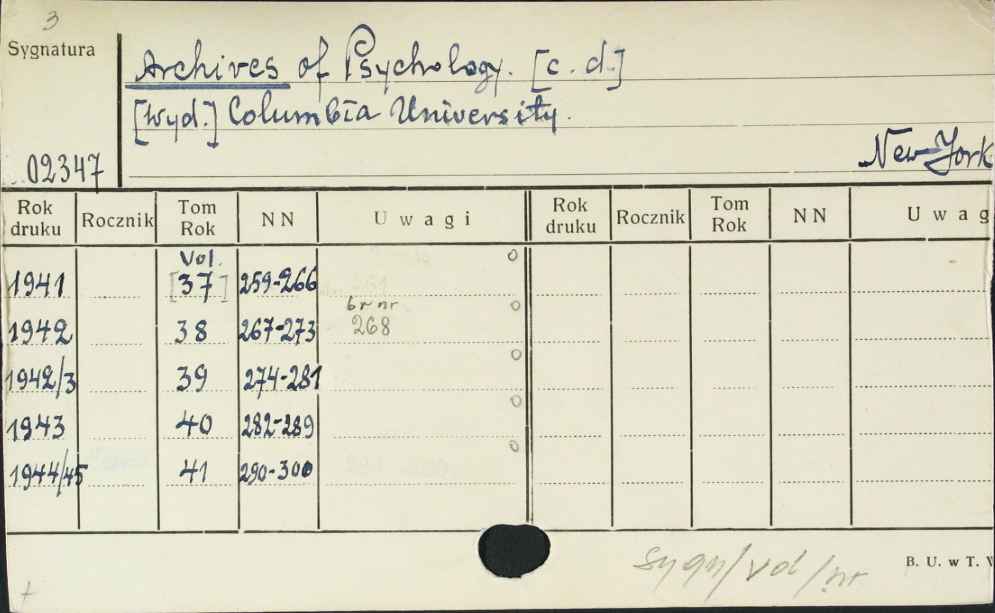 3
Sygnatura
Archives of Psychology. [c. d.]
[Wyd.] Columbia University.
02347
New York
Rok druku Rocznik Tom Rok NN Uwagi Rok druku Rocznik Tom Rok NN Uwag
Vol.
1941 [37] 259-266
br nr
1942 38 267-273 268
1942/3 39 274-281
1943 40 282-289
1944/45 41 290-300
sygn/vol/nr
B. U. w T.